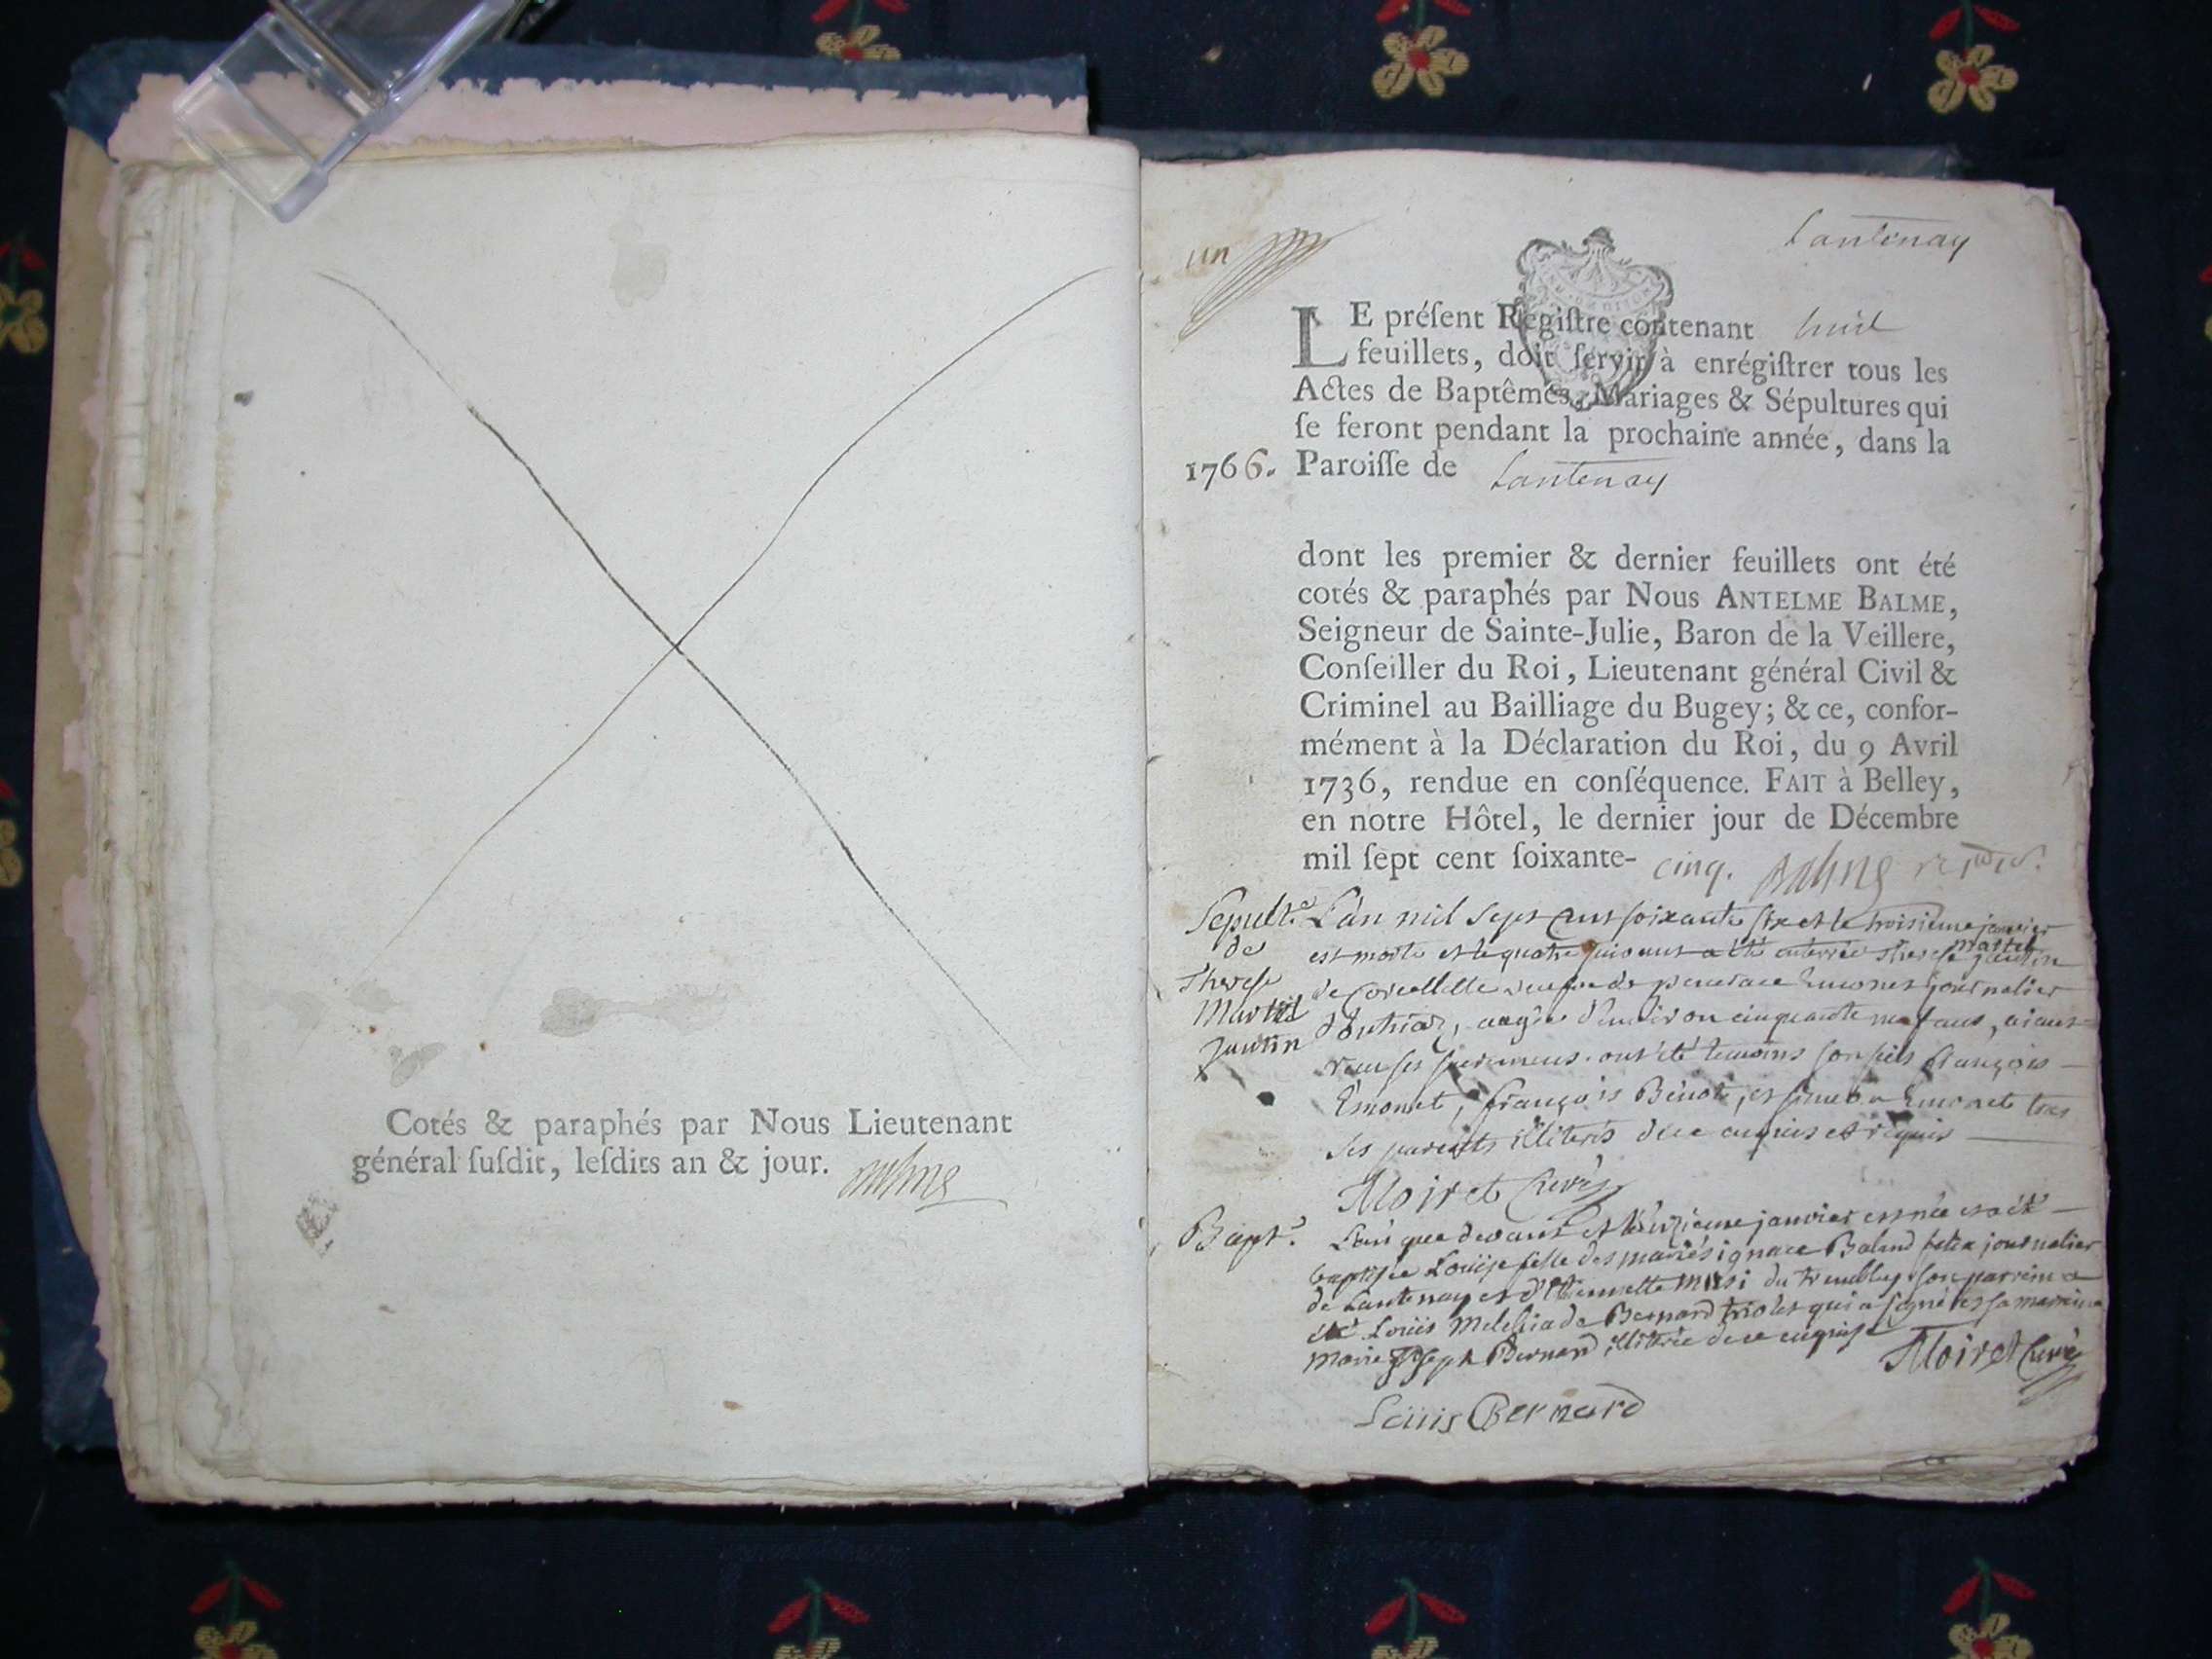 Cotés & paraphés par Nous Lieutenant
général ſuſdit, leſdits an & jour. Balme
un
Lantenay
LE préſent Regiſtre contenant huit
feuillets, doit ſervir à enrégiſtrer tous les
Actes de Baptêmes, Mariages & Sépultures qui
ſe feront pendant la prochaine année, dans la
1766. Paroiſſe de Lantenay
dont les premier & dernier feuillets ont été
cotés & paraphés par Nous ANTELME BALME,
Seigneur de Sainte-Julie, Baron de la Veillere,
Conſeiller du Roi, Lieutenant général Civil &
Criminel au Bailliage du Bugey; & ce, confor-
mément à la Déclaration du Roi, du 9 Avril
1736, rendue en conſéquence. FAIT à Belley,
en notre Hôtel, le dernier jour de Décembre
mil ſept cent ſoixante- cinq. Balme
Sepult.e
de
Therese
Martin
Jantin
L'an mil sept cent soixante six et le troisieme janvier
est morte et le quatre suivant a été enterrée Therese Jantin
veuve de journalier
d'outriaz, aagée d'environ cinquante neuf ans, aiant
reçu ses sacremens. ont été temoins son fils François
Emonet, François Benoit, et Emonet tous
ses parents illiterés de ce enquis et requis
Moiret Curé
Bapt.
L'an que devant et le janvier est née et a été
baptisée Louise fille des mariés ignace Baland journalier
de Lantenay et d'Etiennette du tremblay son parrein a
été Louis Bernard qui a signé et sa marreine
marie Joseph Bernard illiterée de ce enquise
Moiret Curé
Louis Bernard